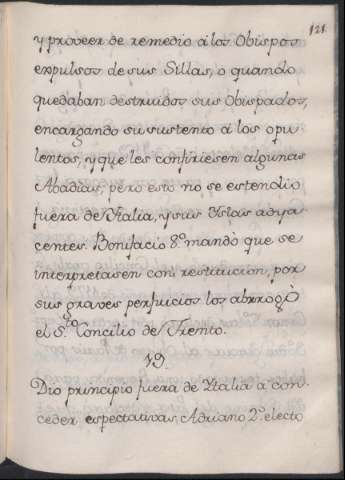 121
y proveer de remedio á los Obispos
expulsos de sus Sillas, o quando
quedaban destruidos sus Obispados,
encargando su sustento á los opu
lentos, y que les confiriesen algunas
Abadias, pero esto no se estendió
fuera de Ytalia, y sus Yslas adya
centes. Bonifacio 8.º mandó que se
interpretasen con restriccion, por
sus graves perjuicios los abrrogò
el S.to Concilio de Trento.
19.
Dio principio fuera de Ytalia a con-
ceder espectativas, Adriano 2.º electo